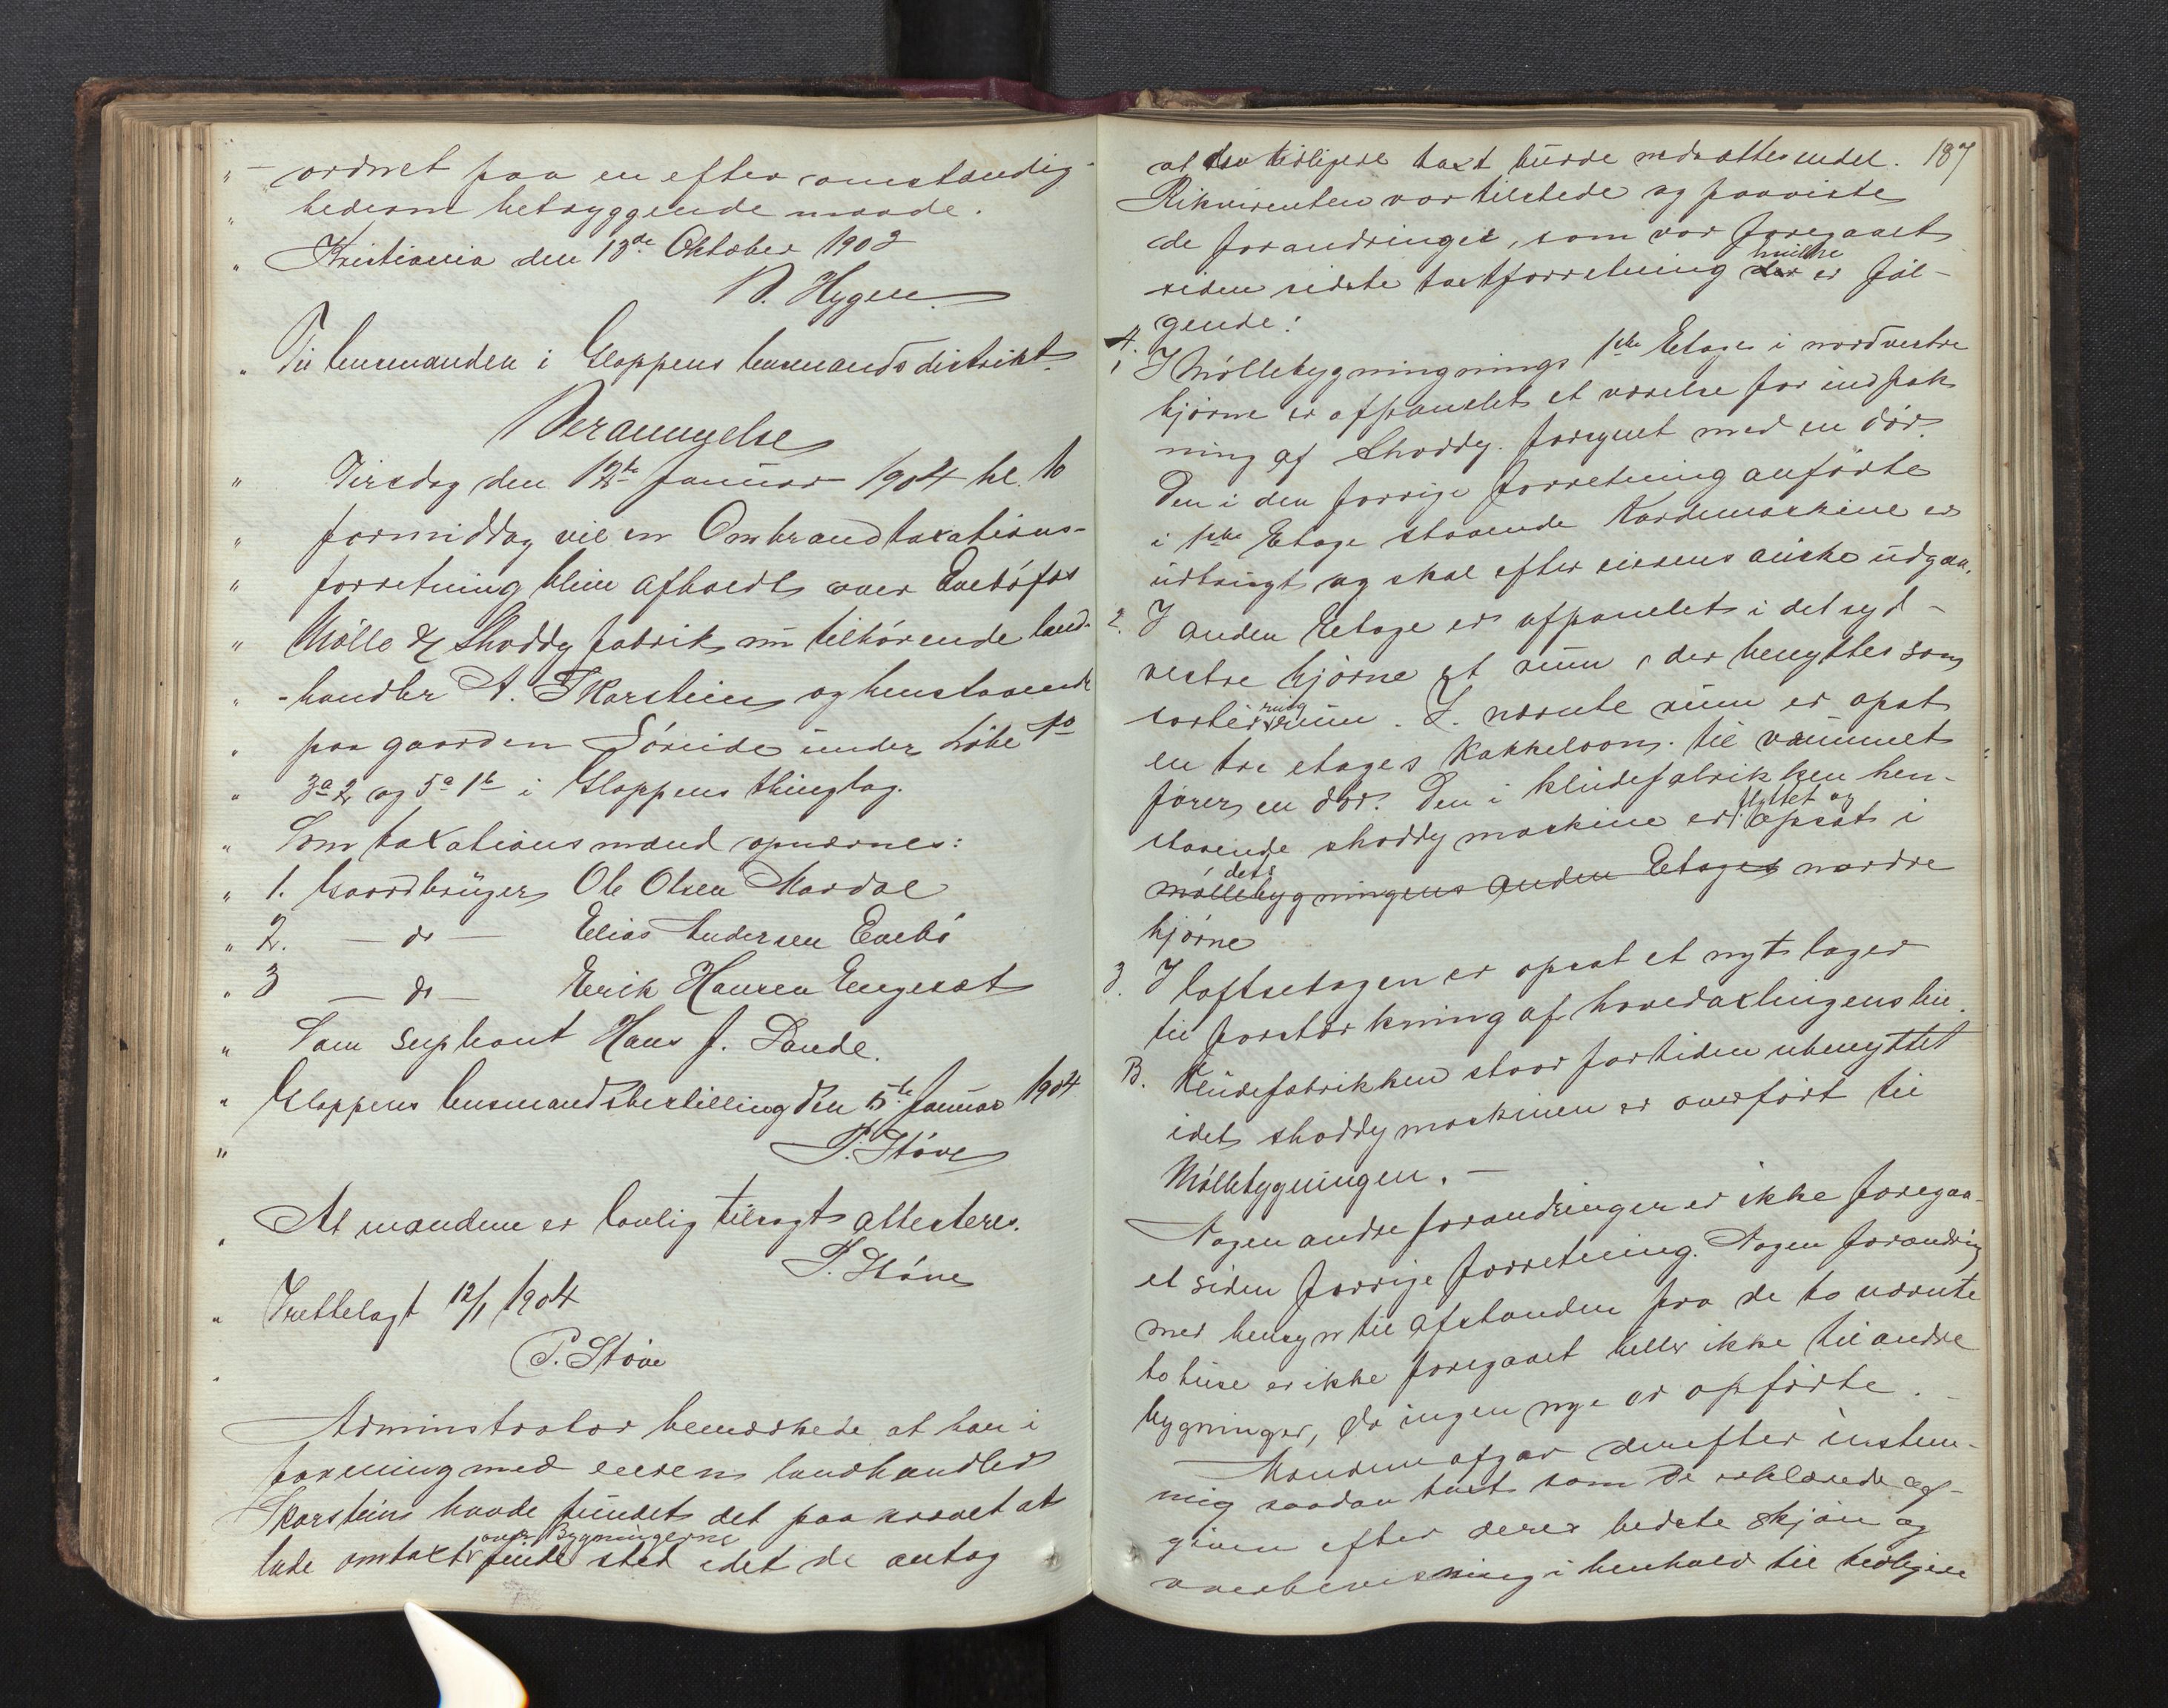 " — ordnet paa en efter omstændig-
" hederne betryggende maade.
" Kristiania den 13de Oktober 1903
N. Hygen.
" Til lensmanden i Gloppens lensmandsdistrikt.
Berammelse
" Tirsdag den 12te Januar 1904 kl. 10
" formiddag vil en Ombrandtaxations-
" forretning blive afholdt over Evebøfos
" Mølle & Shoddyfabrik nu tilhørende land-
" -handler A. Skarstein og henstaaende
" paa gaarden Søreide under Løbe No
" 3a 2 og 5a 1b i Gloppens thinglag.
" Som taxationsmænd opnævnes:
" 1. Gaardbruger Ole Olsen Mardal
" 2. — do — Elias Andersen Evebø
" 3 — do — Erik Hansen Engeset
" Som supleant Hans J. Sande.
" Gloppens lensmandsbestilling den 5te Januar 1904
" P. Støve
" At mændene er lovlig tilsagt attesteres.
P. Støve
" Fremlagt 12/1 1904
" P. Støve
Adminstrator bemærkede at han i
forening med eieren landhandler
Skarstein havde fundet det paakrævet at
over Bygningerne
lade omtaxt finde sted idet de antog
at den tidligere taxt burde nedsættes endel. 187
Rikvirenten var tilstede og paaviste
de forandringer, som var foregaaet
hvilke
siden sidste taxtforretning der er føl-
gende:
A.
1 I Møllebygningnings 1ste Etage i nordvestre
hjørne er afpanelet et værelse for indpak
ning af Shoddy. forsynet med en dør.
Den i den forrige forretning anførte
i 1ste Etage staaende Kardemaskine er
udtagt og skal efter eierens ønske udgaa.
2. I anden Etage er afpanelet i det syd-
vestre hjørne et rum, der benyttes som
ring
sorterrum. I nævnte rum er opsat
en tre etages Kakkelovn. til rummet
fører en dør. Den i kludefabrikken hen-
flyttet og
staaende shoddymaskine er opsat i
dets
møllebygningens anden Etages nordre
hjørne
3. I loftsetagen er opsat et nyt lager
til forstærkning af hovedaxlingens
B. Kludefabrikken staar fortiden ubenyttet
idet shoddymaskinen er overført til
Møllebygningen. —
Nogen andre forandringer er ikke foregaa-
et siden forrige forretning. Nogen forandring
med hensyn til afstanden fra de to nævnte
to huse er ikke foregaaet heller ikke til andre
bygninger, da ingen nye er opførte. —
Mændene afgav derefter enstem-
mig saadan taxt som de erklærede af-
given efter deres bedste skjøn og
overbevisning i henhold til tidligere